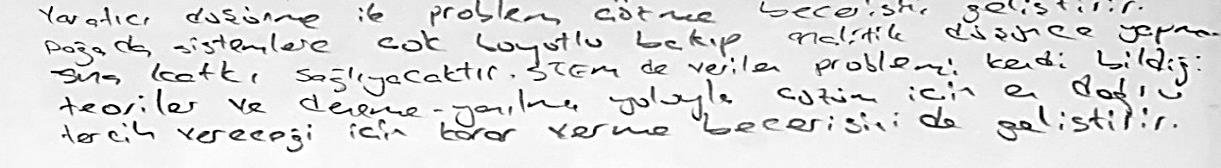 Yaratıcı düşünme ile problem çözme becerisini geliştirir.
Doğada sistemlere çok boyutlu bakıp analitik düşünce yapma-
sına katkı sağlıyacaktır. STEM de verilen problemi kendi bildiği
teoriler ve deneme-yanılma yoluyla çözüm için en doğru
tercih vereceği için karar verme becerisini de geliştirir.